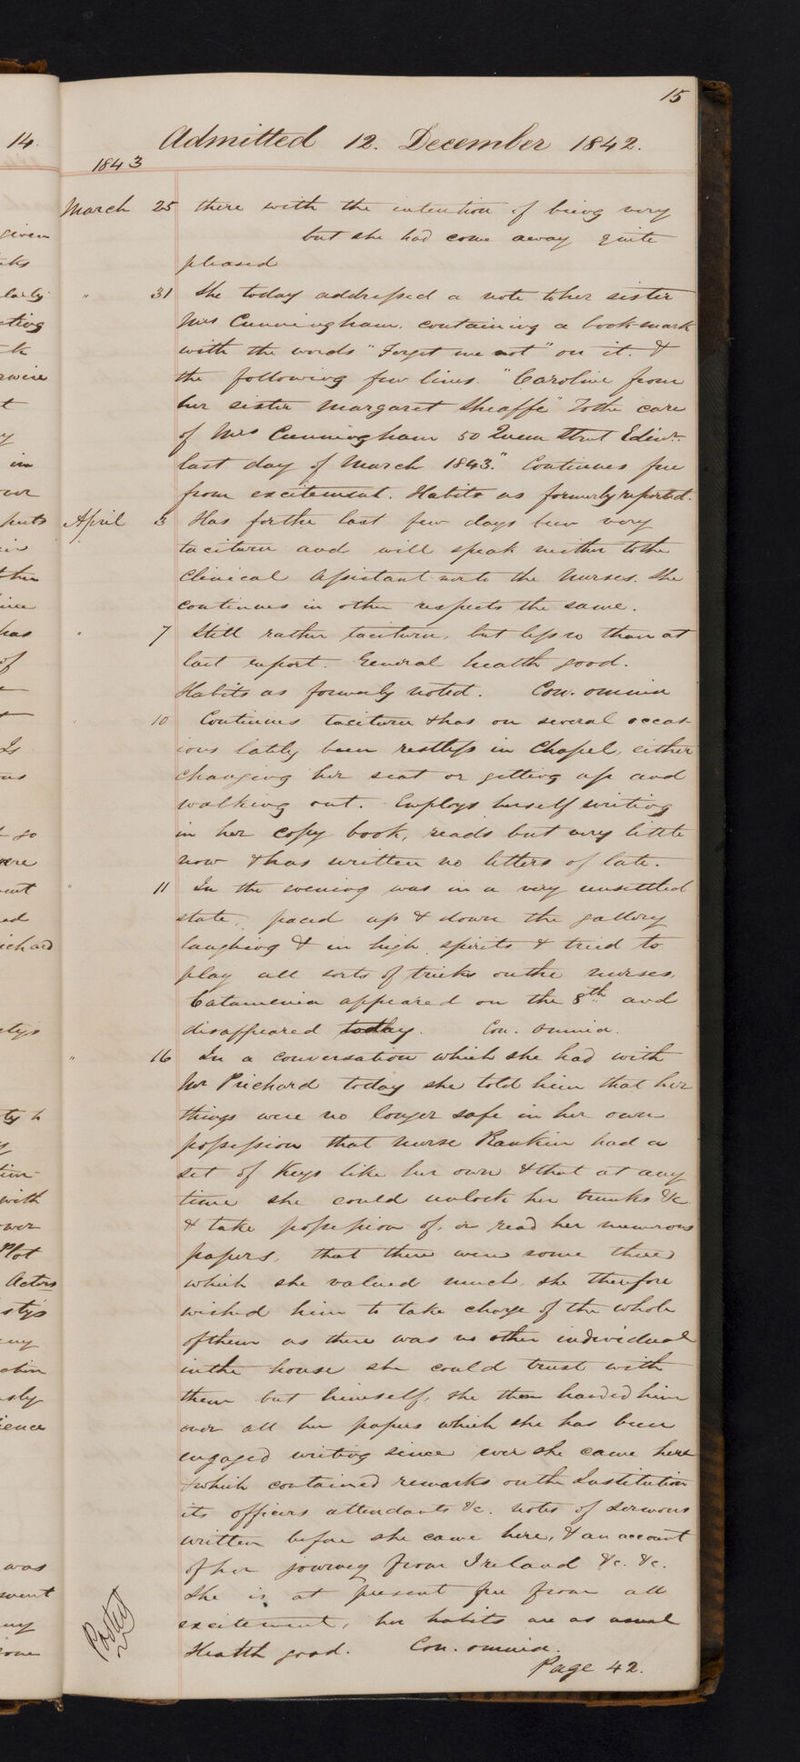 15
14. Admitted 12. December 1842.
1843
March 25 there with the intention of being very
but she had come away quite
pleased
" 31 She today addressed a note to her sister
Mrs Cunningham, containing a book-mark
with the words "Forget me not" on it. &
the following few lines. "Caroline from
her sister Margaret Sheaffe" To the care
of Mrs Cunningham 50 Queen Street Edinr.
last day of March 1843." Continues free
from excitement. Habits as formerly reported.
April 3 Has for the last few days been very
taciturn and will speak neither to the
Clinical Assistant nor to the Nurses. She
continues in other respects the same.
" 7 Still rather taciturn, but less so than at
last report. General health good.
Habits as formerly noted. Con. omnia
10 Continues taciturn & has on several occas
ions lately been restless in Chapel, either
changing her seat or getting up and
walking out. Employs herself writing
in her copy book, reads but very little
now & has written no letters of late.
" 11 In the evening was in a very unsettled
state, paced up & down the gallery
laughing & in high spirits & tried to
play all sorts of tricks on the nurses.
Catamenia appeared on the 8th and
disappeared today. Con. omnia.
" 16 In a conversation which she had with
Mr Prichard today she told him that her
things were no longer safe in her own
possession that nurse Rankin had a
set of Keys like her own & that at any
time she could unlock her trunks &c
& take possession of, or read her numerous
papers, that there were some there
which she valued much, she therefore
wished him to take charge of the whole
of them as there was no other individual
in the house she could trust with
them but himself, she then handed him
over all her papers which she has been
engaged writing since ever she came here
& which contained remarks on the Institution
its officers attendants &c. notes of sermons
written before she came here, & an account
of her journey from Ireland &c. &c.
She is at present free from all
excitement, her habits are as usual
Health good. Con. omnia.
Page 42.